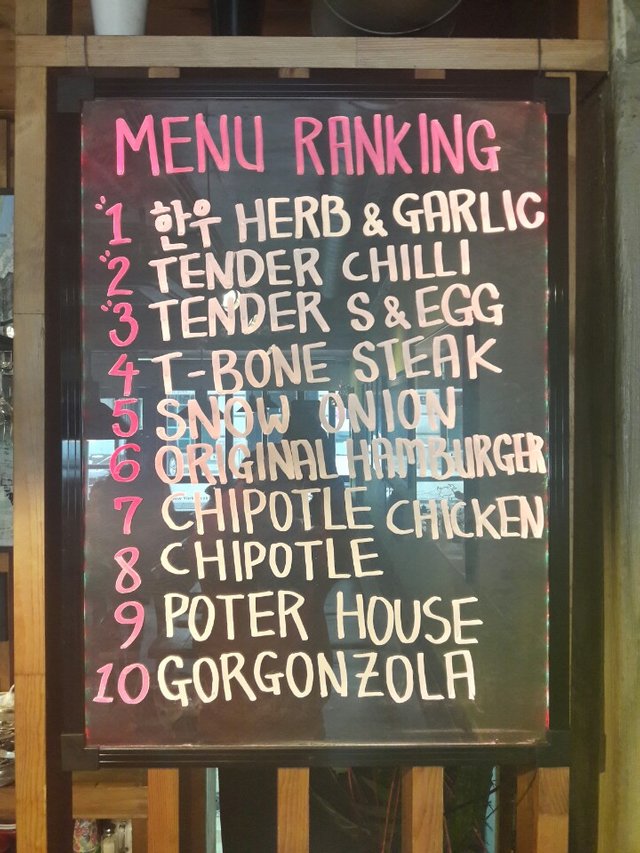 MENU RANKING
1 한우 HERB & GARLIC
2 TENDER CHILLI
3 TENDER S & EGG
4 T-BONE STEAK
5 SNOW ONION
6 ORIGINAL HAMBURGER
7 CHIPOTLE CHICKEN
8 CHIPOTLE
9 POTER HOUSE
10 GORGONZOLA